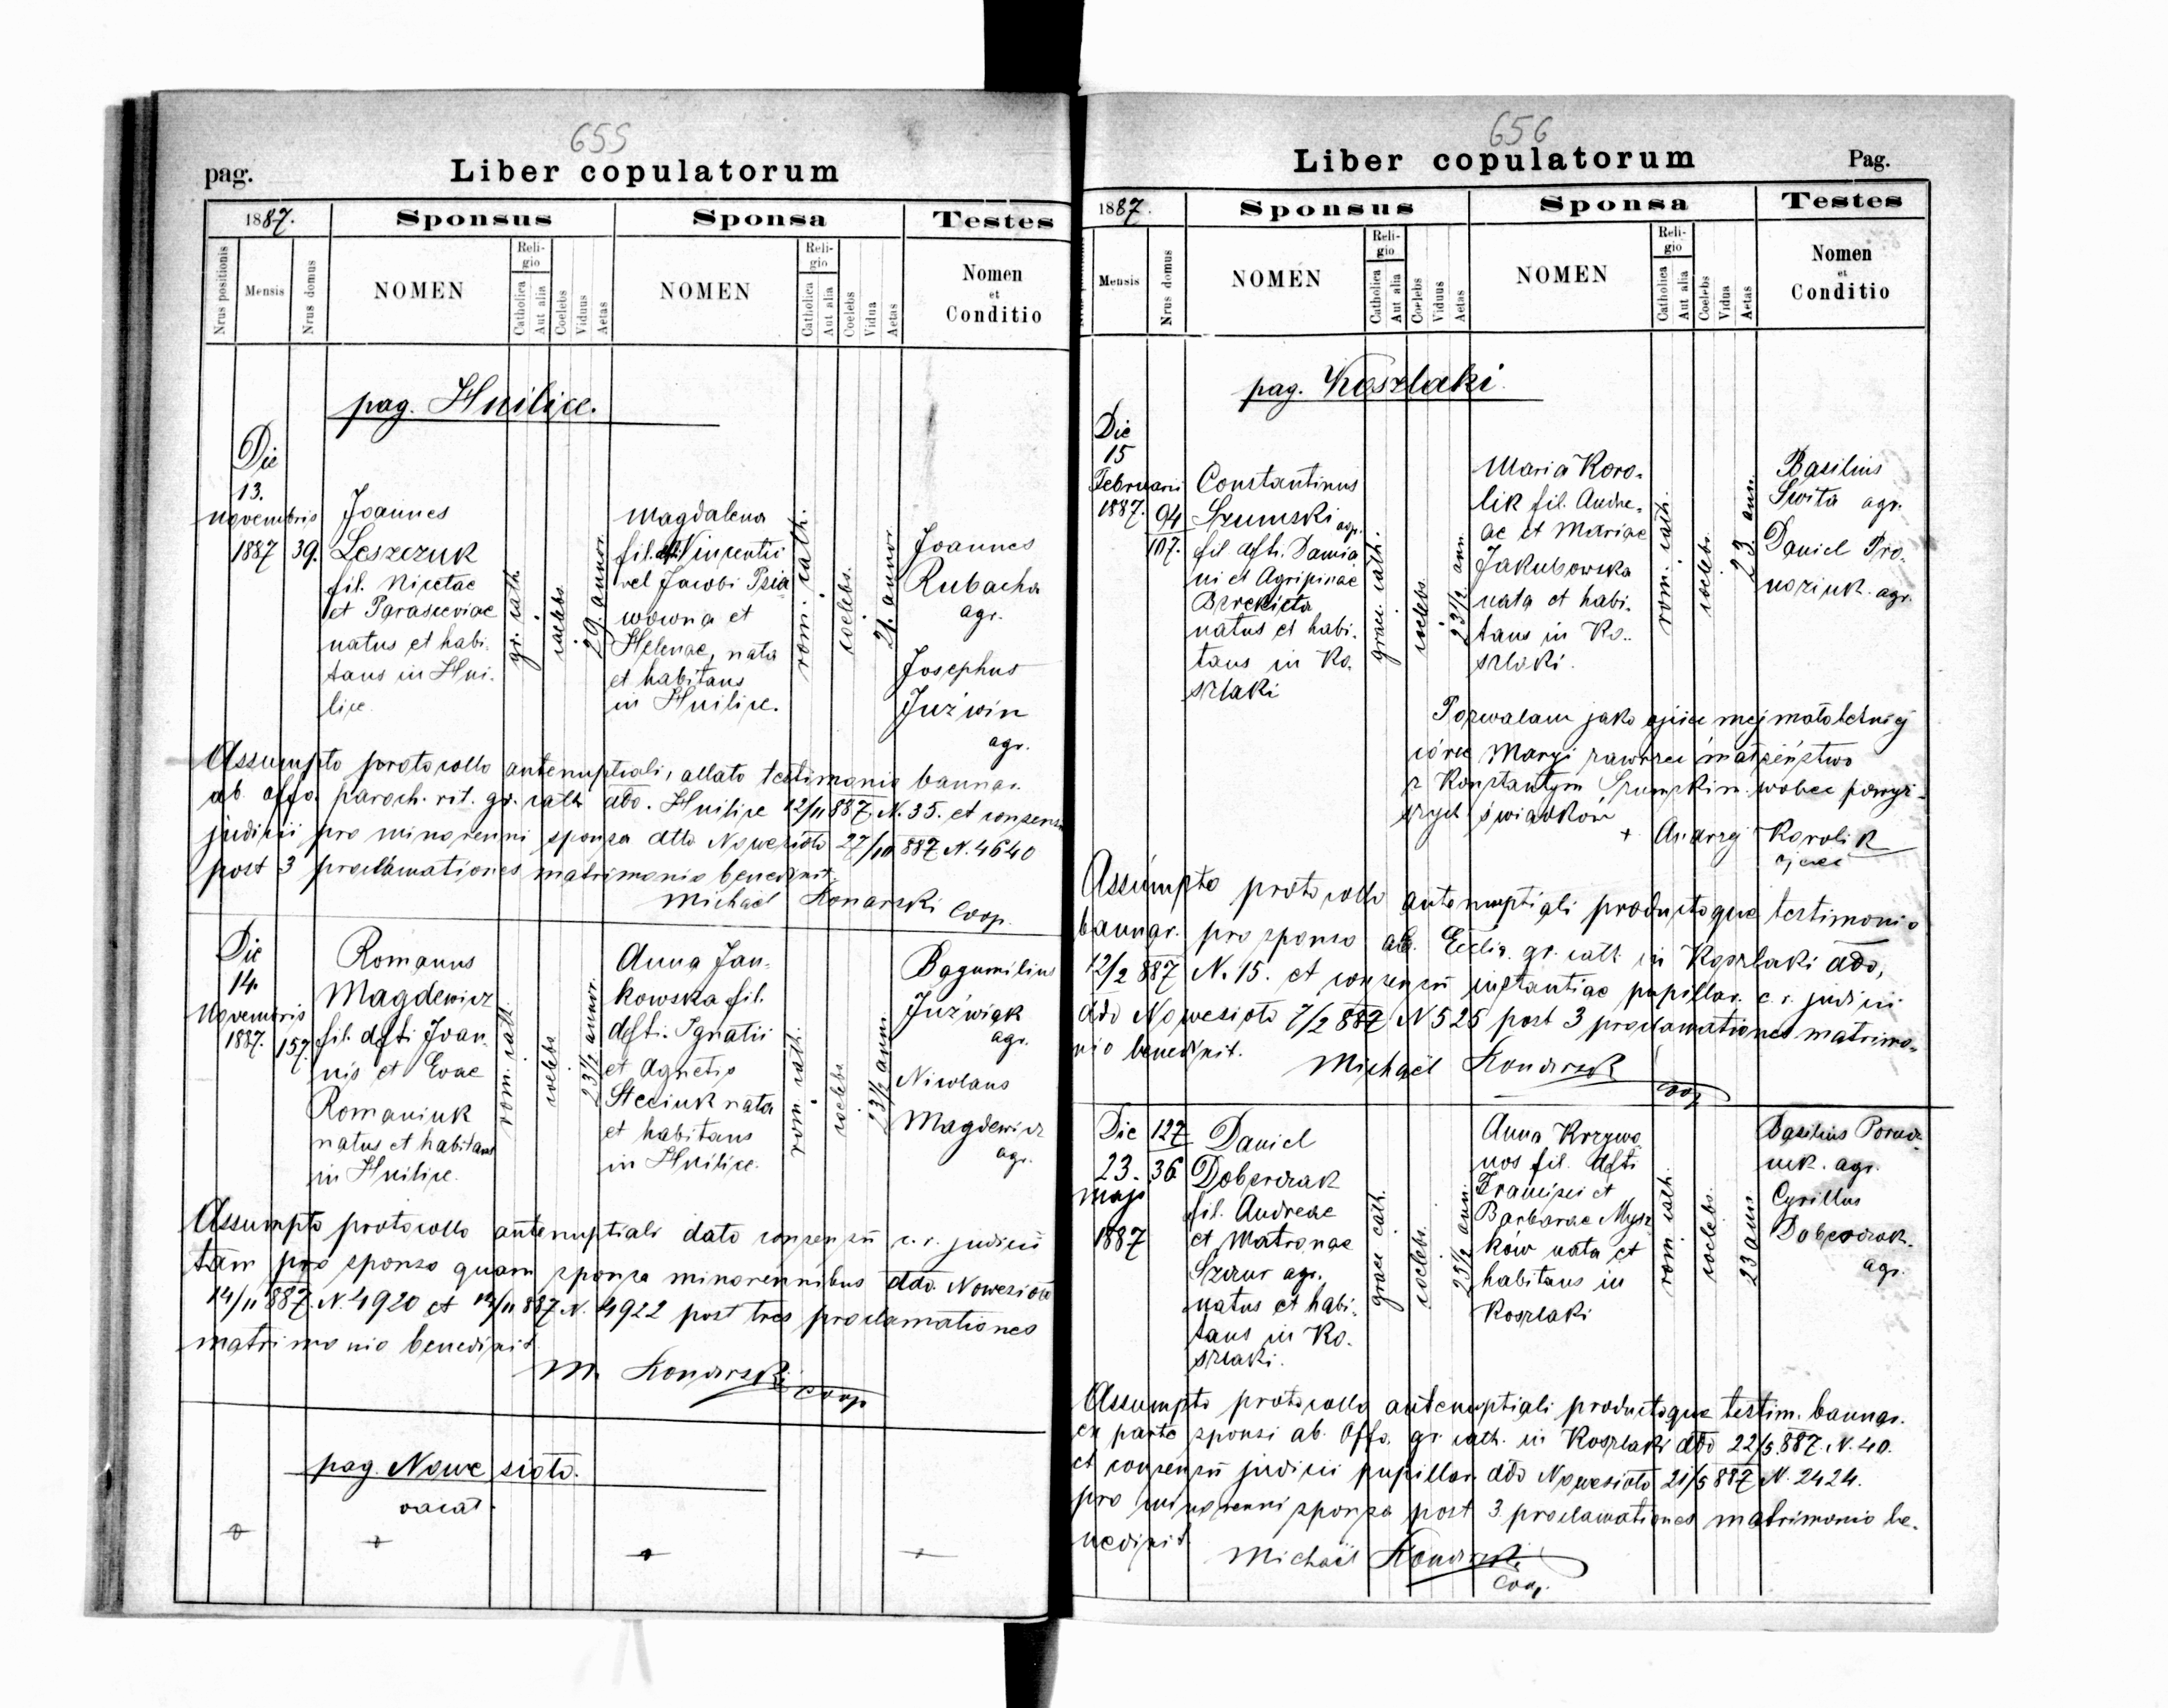 655
pag.
Liber copulatorum
1887.
Sponsus
Sponsa
Testes
Nrus positionis
Mensis
Nrus domus
NOMEN
Religio
Catholica
Aut alia
Coelebs
Viduus
Aetas
NOMEN
Religio
Catholica
Aut alia
Coelebs
Vidua
Aetas
Nomen
et
Conditio
pag. Huilice.
Die
13.
Novembris
1887
39.
Joannes
Leszczuk
fil. Nicetae
et Parasceviae
natus et habi-
tans in Hui-
lice.
gr. cath.
coelebs.
29. annor.
Magdalena
fil. Vincentii
vel Jacobi Psia
wowna et
Helenae, nata
et habitans
in Huilice.
rom. cath.
coelebs.
21. annor.
Joannes
Rubacha
agr.
Josephus
Juźwin
agr.
Assumpto protocollo antenuptiali, allato testimonio bannor.
ab offo. paroch. rit. gr. cath. ddo. Huilice 12/11 887. N. 35. et consensu
judicii pro minorenni sponsa dtto Nowesioło 27/10 887 N. 4640
post 3 proclamationes matrimonio benedixit.
Michaël Konarski Coop.
Die
14.
Novembris
1887.
157.
Romanus
Magdewicz
fil. dfti Joan-
nis et Evae
Romaniuk
natus et habitans
in Huilice.
rom. cath.
coelebs
23 1/2 annor.
Anna Jan-
kowska fil.
dfti. Ignatii
et Agnetis
Steciuk nata
et habitans
in Huilice.
rom. cath.
coelebs
23 1/2 ann.
Bogumilius
Juźwiak
agr.
Nicolaus
Magdewicz
agr.
Assumpto protocollo antenuptiali dato consensu c. r. judicii
tam pro sponso quam sponsa minorennibus ddo. Nowesioło
14/11 887. N. 4920 et 14/11 887. N. 4922 post tres proclamationes
matrimonio benedixit
M. Konarski
coop
pag. Nowe sioło.
vacat.
656
Liber copulatorum
Pag.
1887.
Sponsus
Sponsa
Testes
Mensis
Nrus domus
NOMEN
Religio
Catholica
Aut alia
Coelebs
Viduus
Aetas
NOMEN
Religio
Catholica
Aut alia
Coelebs
Vidua
Aetas
Nomen
et
Conditio
pag. Koszlaki.
Die
15
Februarii
1887.
94
107.
Constantinus
Szumski agr.
fil dfti. Damia
ni et Agripinae
natus et habi-
tans in Ko-
szlaki
graec. cath.
coelebs.
23 1/2 ann.
Maria Koro-
lik fil. Andre-
ae et Mariae
Jakubowska
nata et habi-
tans in Ko-
szlaki.
rom. cath.
coelebs.
23 ann.
Basilius
Swita agr.
Daniel Pro-
agr.
Pozwalam jako ojciec mej małoletniej
córce Maryi zawrzeć małżeństwo
z Konstantym Szumskim wobec powyż-
szych świadków
+ Andrzej Korolik
ojciec
Assumpto protocollo antenuptiali productoque testimonio
bannor. pro sponso ab. Ecclia. gr. cath. in Koszlaki ddo,
12/2 887 N. 15. et consensu instantiae pupillar. c. r. judicii
ddo Nowesioło 7/2 887 N 525 post 3 proclamationes matrimo-
nio benedixit.
Michaël Konarski
Coop
Die
23.
maji
1887
127
36
Daniel
Doberczak
fil. Andreae
et Matronae
agr.
natus et habi-
tans in Ko-
szlaki.
graec cath.
coelebs.
25 1/2 ann.
Anna Krzywo
nos fil. dfti
Francisci et
Barbarae Mysz
ków nata et
habitans in
Koszlaki
rom. cath.
coelebs.
23 ann
Basilius
agr.
Cyrillus
Doberczak.
agr.
Assumpto protocollo antenuptiali productoque testim. bannor.
ex parte sponsi ab. Offo. gr. cath. in Koszlaki ddo 22/5 887. N. 40.
et consensu judicii pupillar. ddo Nowesioło 21/5 887 N. 2424.
pro minorenni sponsa post 3 proclamationes matrimonio be-
nedixit.
Michaël Konarski
Coop.